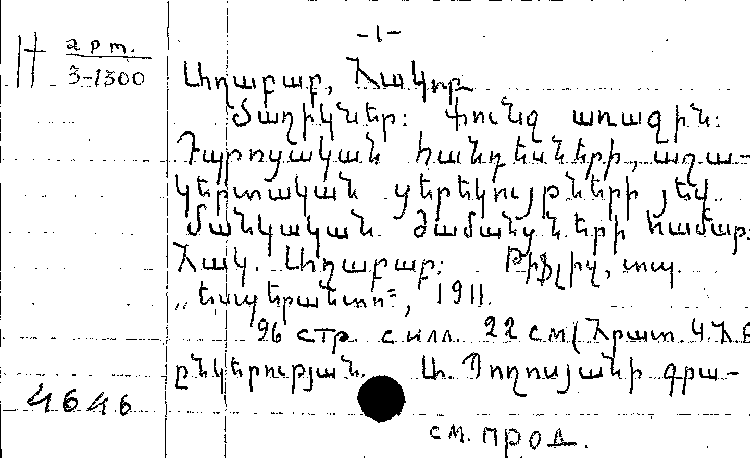 -1-
арт.
3-1300
Աղաբաբ, Հակոբ
Ծաղիկներ: Փունջ առաջին:
Դպրոցական հանդեսների, աշա-
կերտական ցերեկույթների յեվ
մանկական ժամանցների համար:
Հակ. Աղաբաբ: Թիֆլիզ, տպ.
„Եսպերանտո“, 1911.
96 стр. с илл. 22 см (Հրատ. Կ.Հ.Բ
ընկերության Ա. Պողոսյանի գրա-
4646
см. прод.